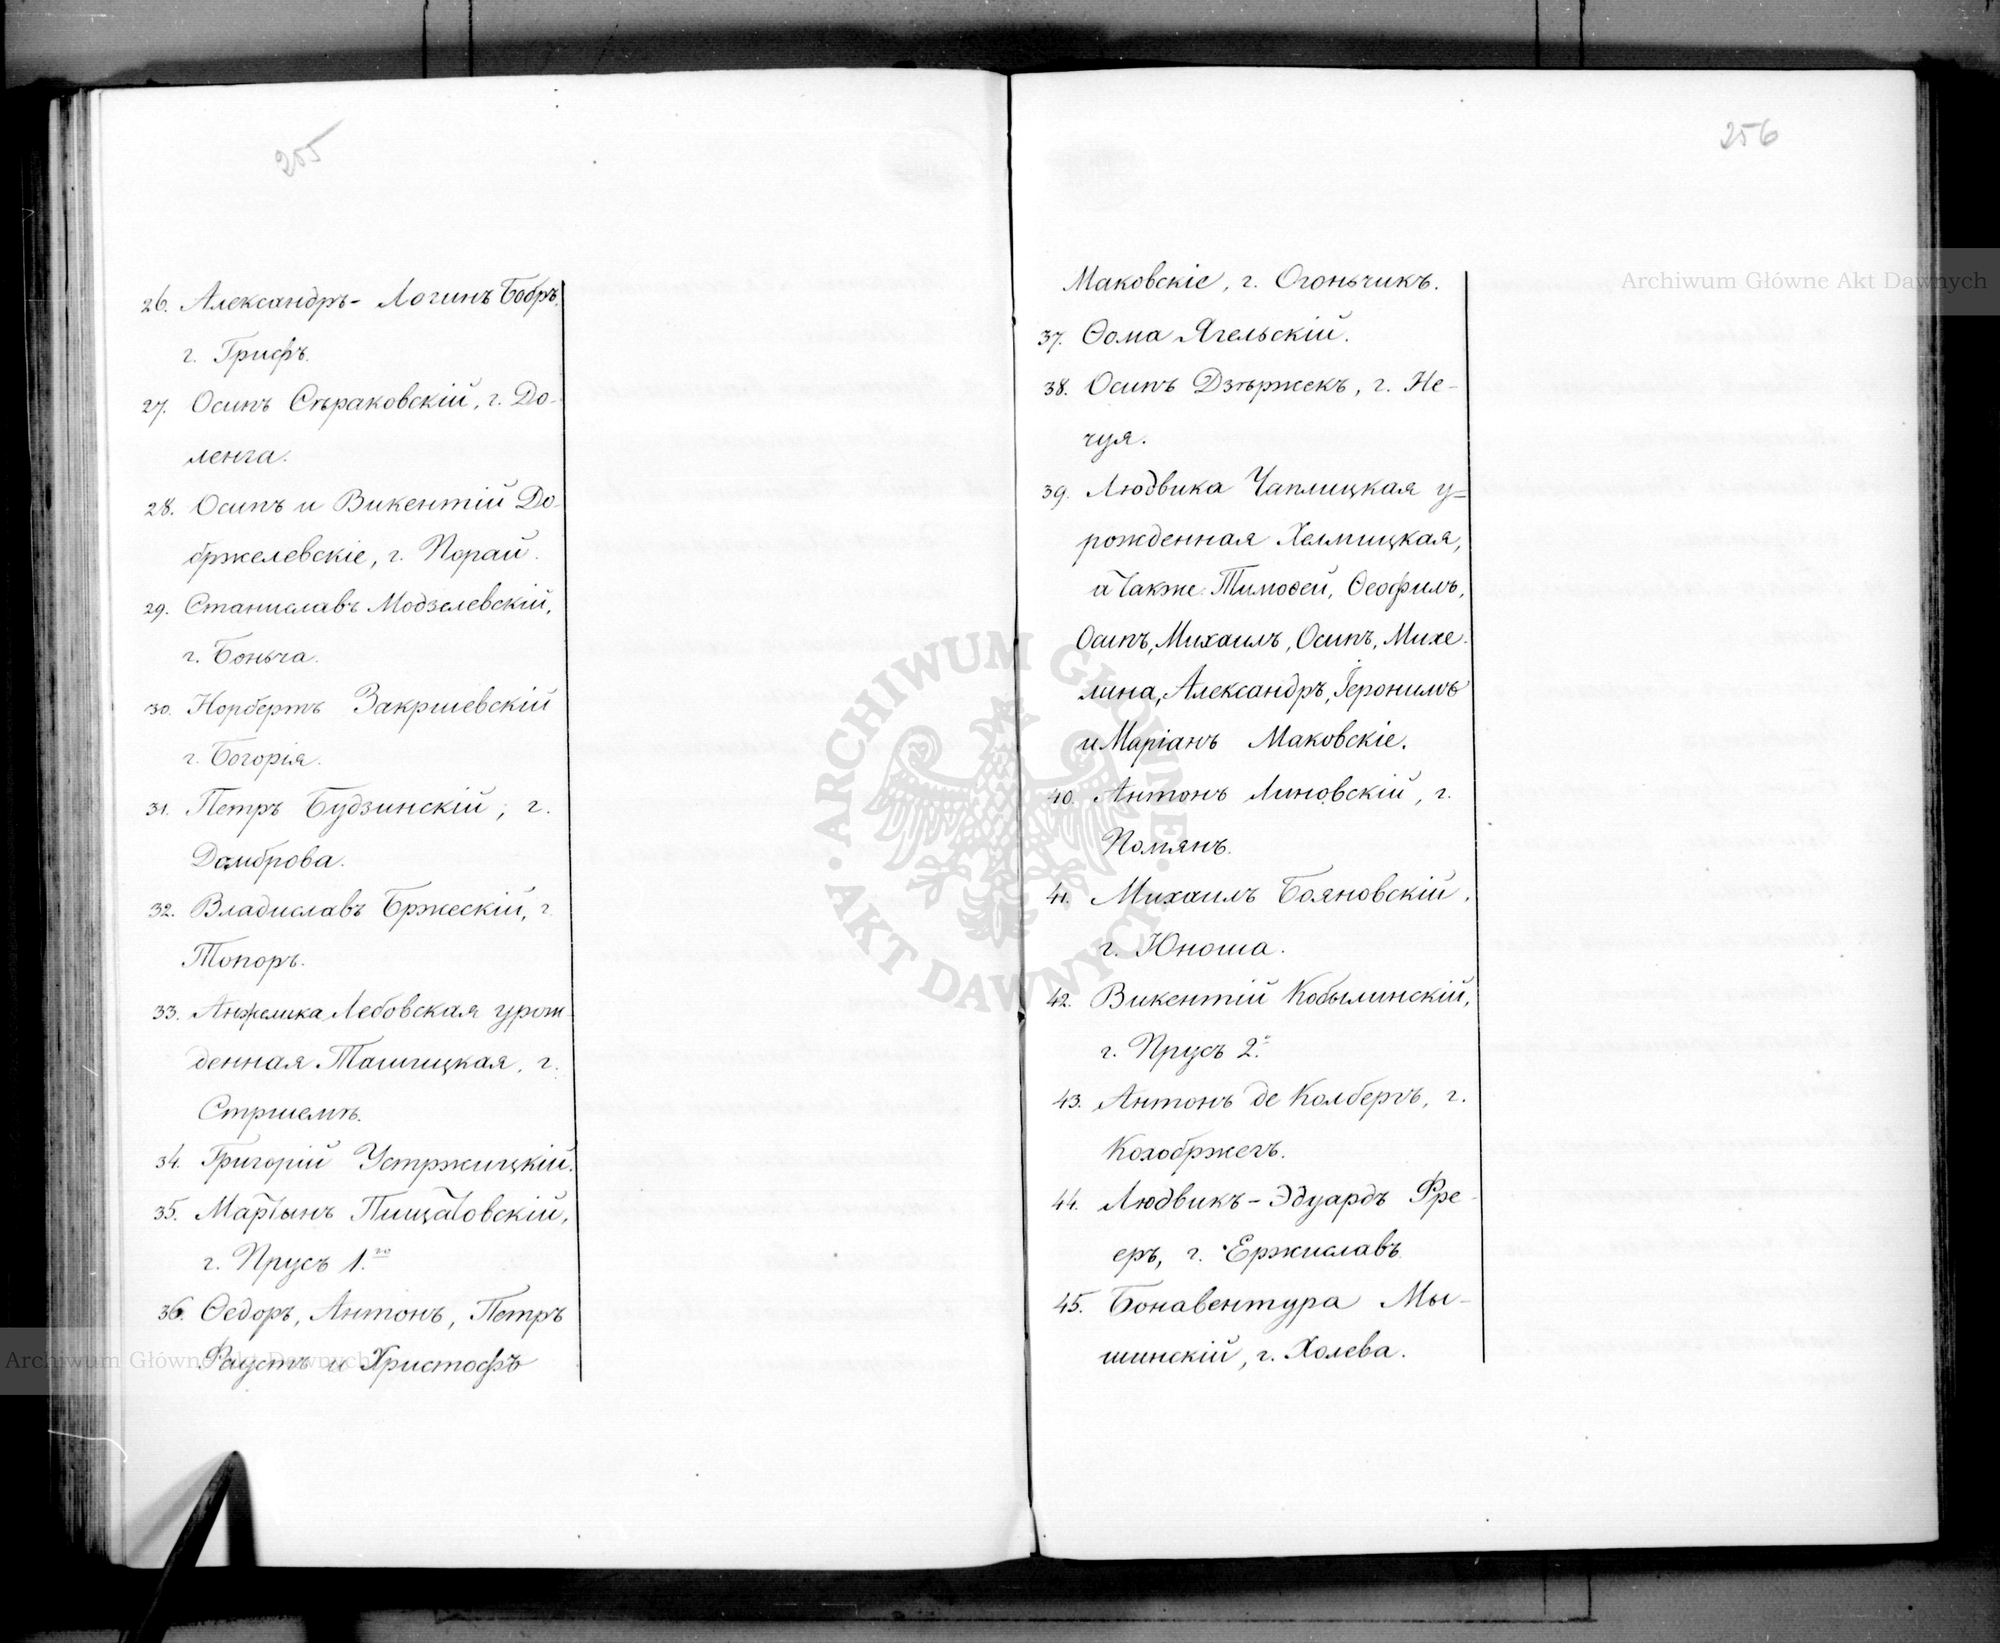 205
26. Александръ- Логинъ Бобръ,
г. Грифъ.
27. Осипъ Сѣраковскій, г. До-
ленга.
28. Осипъ и Викентій До-
бржелевскіе, г. Порай.
29. Станиславъ Модзелевскій,
г. Боньча.
30. Норбертъ Закршевскій
г. Богорія.
31. Петръ Будзинскій, г.
Домброва.
32. Владиславъ Бржескій, г.
Топоръ.
33. Анжелика Лебовская урож
денная Ташицкая, г.
Стршемѣ.
34. Григорій Устржицкій.
35. Мартынъ Пищатовскій,
г. Прусъ 1.го
36. Ѳедоръ, Антонъ, Петръ
Фаустъ и Христофъ
256
Маковскіе, г. Огоньчикъ.
37. Ѳома Ягельскій.
38. Осипъ Дзѣржекъ, г. Не-
чуя.
39. Людвика Чаплицкая у=
рожденная Хелмицкая,
а также: Тимоѳей, Ѳеофилъ,
Осипъ, Михаилъ, Осипъ, Михе-
лина, Александръ, Іеронимъ
и Маріанъ Маковскіе.
40. Антонъ Линовскій, г.
Помянъ.
41. Михаилъ Бояновскій,
г. Юноша.
42. Викентій Кобылинскій,
г. Прусъ 2.й
43. Антонъ де Колбергъ, г.
Колобржегъ.
44. Людвикъ-Эдуардъ Фре-
еръ, г. Ержиславъ
45. Бонавентура Мы-
шинскій, г. Холева.
Archiwum Główne Akt Dawnych
ARCHIWUM GŁÓWNE · AKT DAWNYCH ·
Archiwum Główne Akt Dawnych